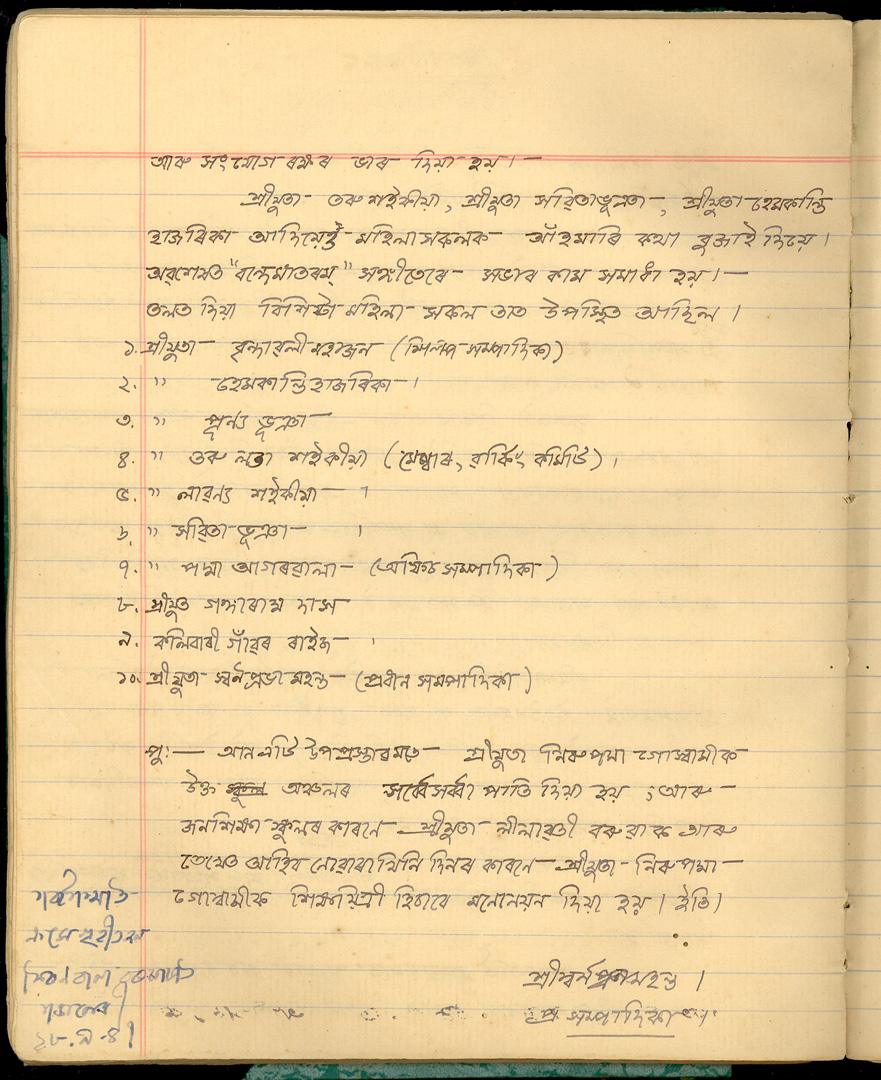 আৰু সংযোগ ৰক্ষাৰ ভাৰ দিয়া হয়।—
শ্ৰীযুতা তৰু শইকীয়া, শ্ৰীযুতা সৰিতা ভূঞা, শ্ৰীযুতা হেমকান্তি
হাজৰিকা আদিয়েই মহিলা সকলক আঁহমাৰি কথা বুজাই দিয়ে।
অৱশেষত "বন্দেমাতৰম্" সঙ্গীতেৰে সভাৰ কাম সমাধা হয়।—
তলত দিয়া বিশিষ্টা মহিলা সকল তাত উপস্থিত আছিল।
১. শ্ৰীযুতা বৃন্দাৱলী মহাজন (শিল্প সম্পাদিকা)
২. " হেমকান্তি হাজৰিকা।
৩. " পূৰ্ণ্য ভূঞা
৪. " তৰু লতা শইকীয়া (মেম্বাৰ, ৱাৰ্কিং কমিটি)।
৫. " লাৱন্য শইকীয়া ।
৬. " সৰিতা ভূঞা ।
৭. " পদ্মা আগৰৱালা (অফিচ সম্পাদিকা)
৮. শ্ৰীযুত গঙ্গাৰাম দাস
৯. কলিবাৰী গাঁৱৰ ৰাইজ
১০. শ্ৰীযুতা স্বৰ্নপ্ৰভা মহন্ত (প্ৰধান সম্পাদিকা)
পুঃ— আন এটি উপপ্ৰস্তাৱ মতে শ্ৰীযুতা নিৰুপমা গোস্বামীক
উক্ত অঞ্চলৰ সৰ্ব্বেসৰ্ব্বা পাতি দিয়া হয়; আৰু
জনশিক্ষা স্কুলৰ কাৰনে শ্ৰীযুতা লীলাৱতী বৰুৱাক আৰু
তেখেত আহিব নোৱাৰা খিনি দিনৰ কাৰনে শ্ৰীযুতা নিৰুপমা
গোস্বামীক শিক্ষয়িত্ৰী হিচাবে মনোনয়ন দিয়া হয়। ইতি।
সৰ্বসম্মতি
ক্ৰমে গৃহীত হল
শ্ৰীস্বৰ্নপ্ৰভা মহন্ত।
প্ৰ সম্পাদিকা
২৮.৯.৪১